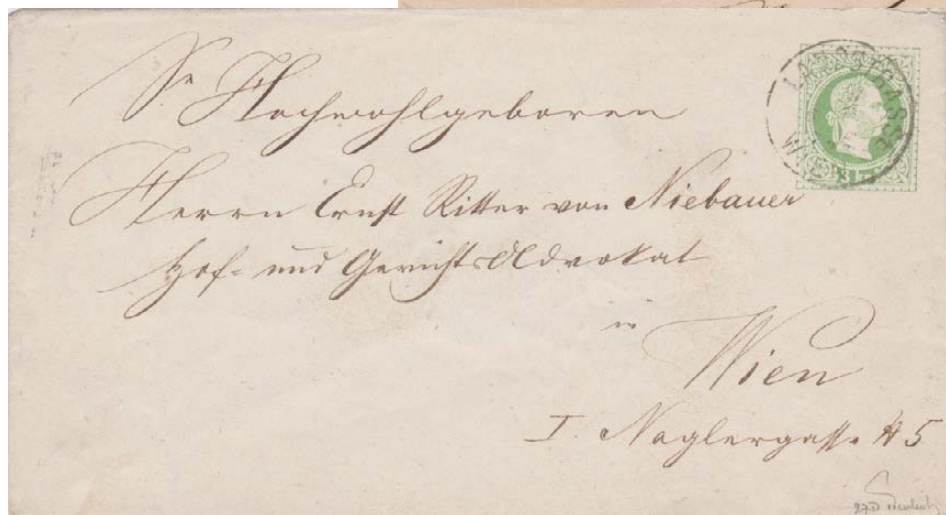 Sr Hochwohlgeboren
Herrn Ernst Ritter von Niebauer
Hof- und Gerichts Advokat
in
Wien
I. Naglergasse # 5
WIEN
3